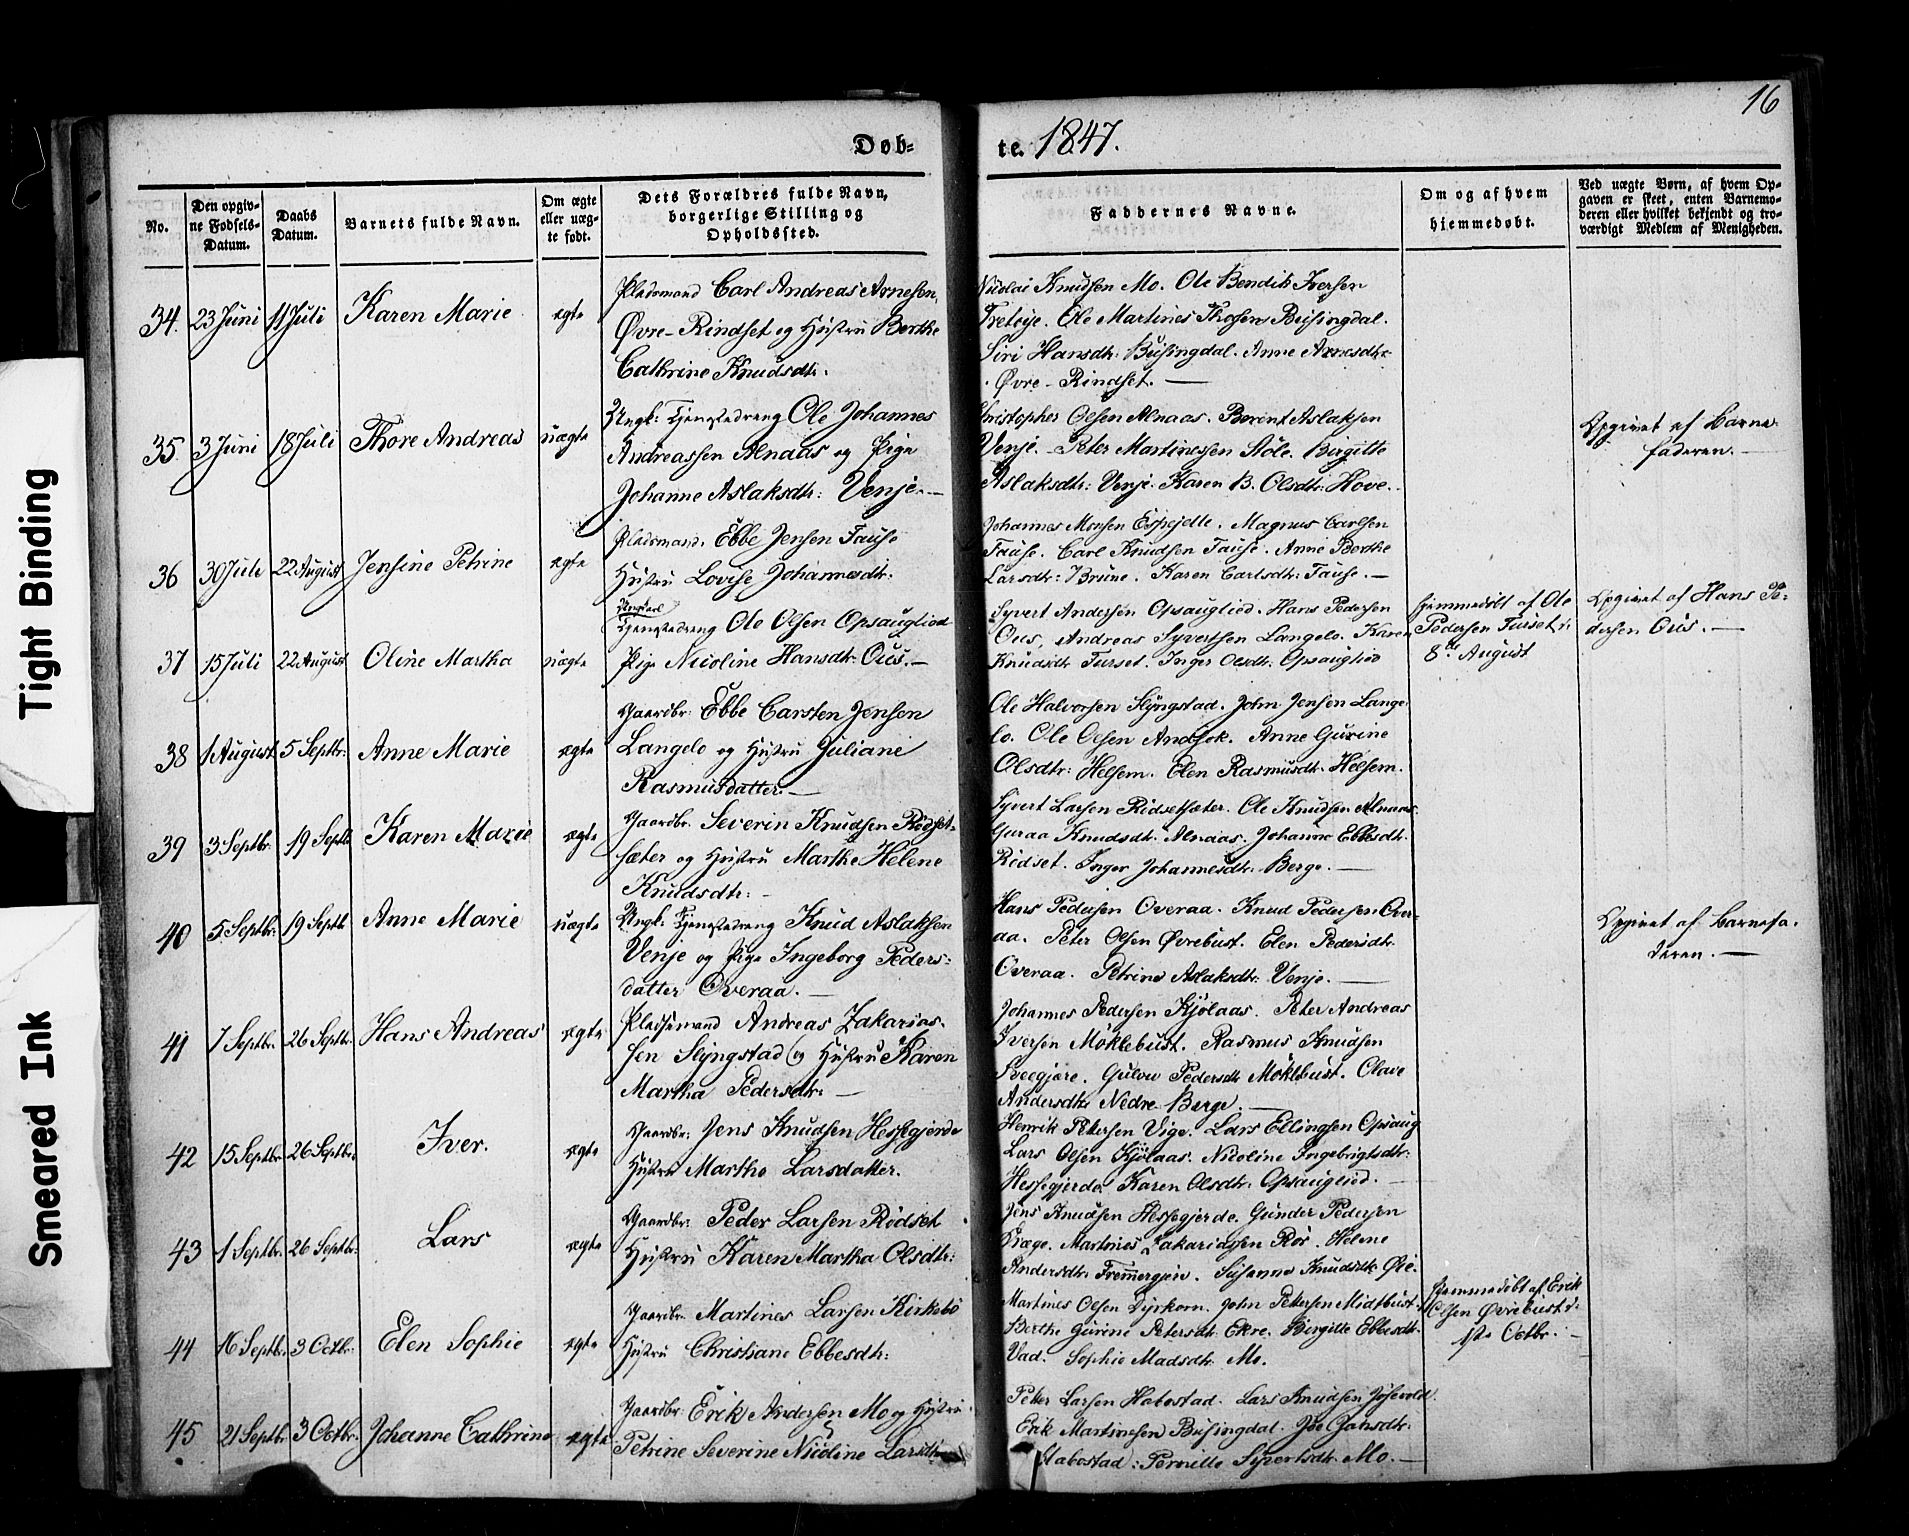 16
Døb=
te. 1847.
No.
Den opgiv-
ne Fødsels-
Datum.
Daabs
Datum.
Barnets fulde Navn.
Om ægte
eller uæg-
te født.
Dets Forældres fulde Navn,
borgerlige Stilling og
Opholdssted.
Faddernes Navne.
Om og af hvem
hjemmedøbt.
Ved uægte Børn, af hvem Op-
gaven er skeet, enten Barnemo-
deren eller hvilket bekjendt og tro-
værdigt Medlem af Menigheden.
34. 23 Juni 11 Juli Karen Marie ægte
Pladsmand Carl Andreas Arnesen,
Øvre-Rindset og Hustru Berthe
Cathrine Knudsdtr.
Nicolai Knudsen Mo. Ole Bendik Iversen
Tretøye. Ole Martines Thosen Busingdal.
Siri Hansdtr: Busingdal. Anne Arnesdtr
Øvre-Rindset. —
35. 3 Juni 18 Juli Thore Andreas uægte
Ungk: Tjenestedreng Ole Johannes
Andreassen Alnaas og Pige
Johanne Aslaksdtr: Venje. —
Christopher Olsen Alnaas. Berent Aslaksen
Venje. Peter Martinessen Støle. Birgitte
Aslaksdtr: Venje. Karen B. Olsdtr: Hove.
Opgivet af Barne-
faderen. —
36 30 Juli 22 August Jensine Petrine ægte
Pladsmand Ebbe Jensen Tause
Hustru Lovise Johannesdtr.
Johannes Monsen Espejelle. Magnus Carlsen
Tause. Carl Knudsen Tause. Anne Berthe
Larsdtr: Brune. Karen Carlsdtr: Tause. —
37 15 Juli 22 August Oline Martha uægte
Ungkarl
Tjenestedreng Ole Olsen Opsauglied
Pige Nicoline Hansdtr. Ous. —
Syvert Andersen Opsauglied. Hans Pedersen
Ous, Andreas Syvertsen Langelo. Karen
Knudsdtr Turset. Inger Olsdtr: Opsauglied
Hjemmedøbt af Ole
Pedersen Turset
8de August
Opgivet af Hans Pe-
dersen Ous. —
38 1 August 5 Septbr: Anne Marie ægte
Gaardbr: Ebbe Carsten Jensen
Langelo og Hustru Juliane
Rasmusdatter. —
Ole Halvorsen Slyngstad. John Jensen Lange-
lo. Ole Olsen Andsok. Anne Gurine
Olsdtr: Helsem. Elen Rasmusdtr. Helsem.
39 3 Septbr. 19 Septb Karen Marie ægte
Gaardbr. Severin Knudsen Rødset-
sæter og Hustru Marthe Helene
Knudsdtr: —
Syvert Larsen Ridsetsæter. Ole Knudsen Alnaas.
Guraa Knudsdtr. Alnaas. Johanne Ebbesdtr.
Ridset. Inger Johannesdtr. Berge. —
40 5 Septbr: 19 Septb Anne Marie uægte
Ungk: Tjenestedreng Knud Aslaksen
Venje og Pige Ingeborg Peders-
datter Overaa. —
Hans Pedersen Overaa. Knud Pedersen Over-
aa. Peter Olsen Øvrebust. Elen Pedersdtr
Overaa. Petrine Aslaksdtr. Venje. —
Opgivet af Barnefa-
deren. —
41 7 Septbr. 26 Septbr. Hans Andreas ægte
Pladsemand Andreas Zakarias-
sen Slyngstad og Hustru Karen
Martha Pedersdtr: —
Johannes Pedersen Kjølaas. Peter Andreas
Iversen Møklebust. Rasmus Knudsen
Sveegjære. Gulou Pedersdtr Møklebust. Olave
Andersdtr. Nedre Berge. —
42 15 Septbr. 26 Septbr. Iver. ægte
Gaardbr: Jens Knudsen Hessegjerde
Hustru Martha Larsdatter.
Henrik Petersen Vige. Lars Ellingsen Opsaug
Lars Olsen Kjølaas. Nicoline Ingebrigtsdtr:
Hessegjerde. Karen Olsdtr: Opsauglied. —
43 1 Septbr. 26 Septbr. Lars ægte
Gaardbr. Peder Larsen Rødset
Hustru Karen Martha Olsdtr:
Jens Knudsen Hessegjerde. Gunder Pedersen
Fræge. Martines Zakariassen Rør. Helene
Andersdtr: Fremmergjen. Susanne Knudsdtr. Øie.
44 16 Septbr. 3 Octbr. Elen Sophie ægte
Gaardbr. Martines Larsen Kirkebø
Hustru Christiane Ebbesdtr:
Martines Olsen Dyrkorn. John Pettersen Midtbust.
Berthe Gurine Petersdtr. Ekre. Birgitte Ebbesdtr.
Vad. Sophie Madsdtr. Mo.
Hjemmedøbt af Erik
Olsen Øvrebust d.
1ste Octbr. —
45 21 Septbr 3 Octbr. Johanne Cathrine ægte
Gaardbr: Erik Andersen Mo og Hustru
Petrine Severine Nicoline Larsdtr
Petter Larsen Habostad. Lars Knudsen Jøsevold.
Erik Martinesen Busingdal. Jdsdtr.
Habostad: Pernille Syvertsdtr. Mo. —
Tight Binding
Smeared Ink